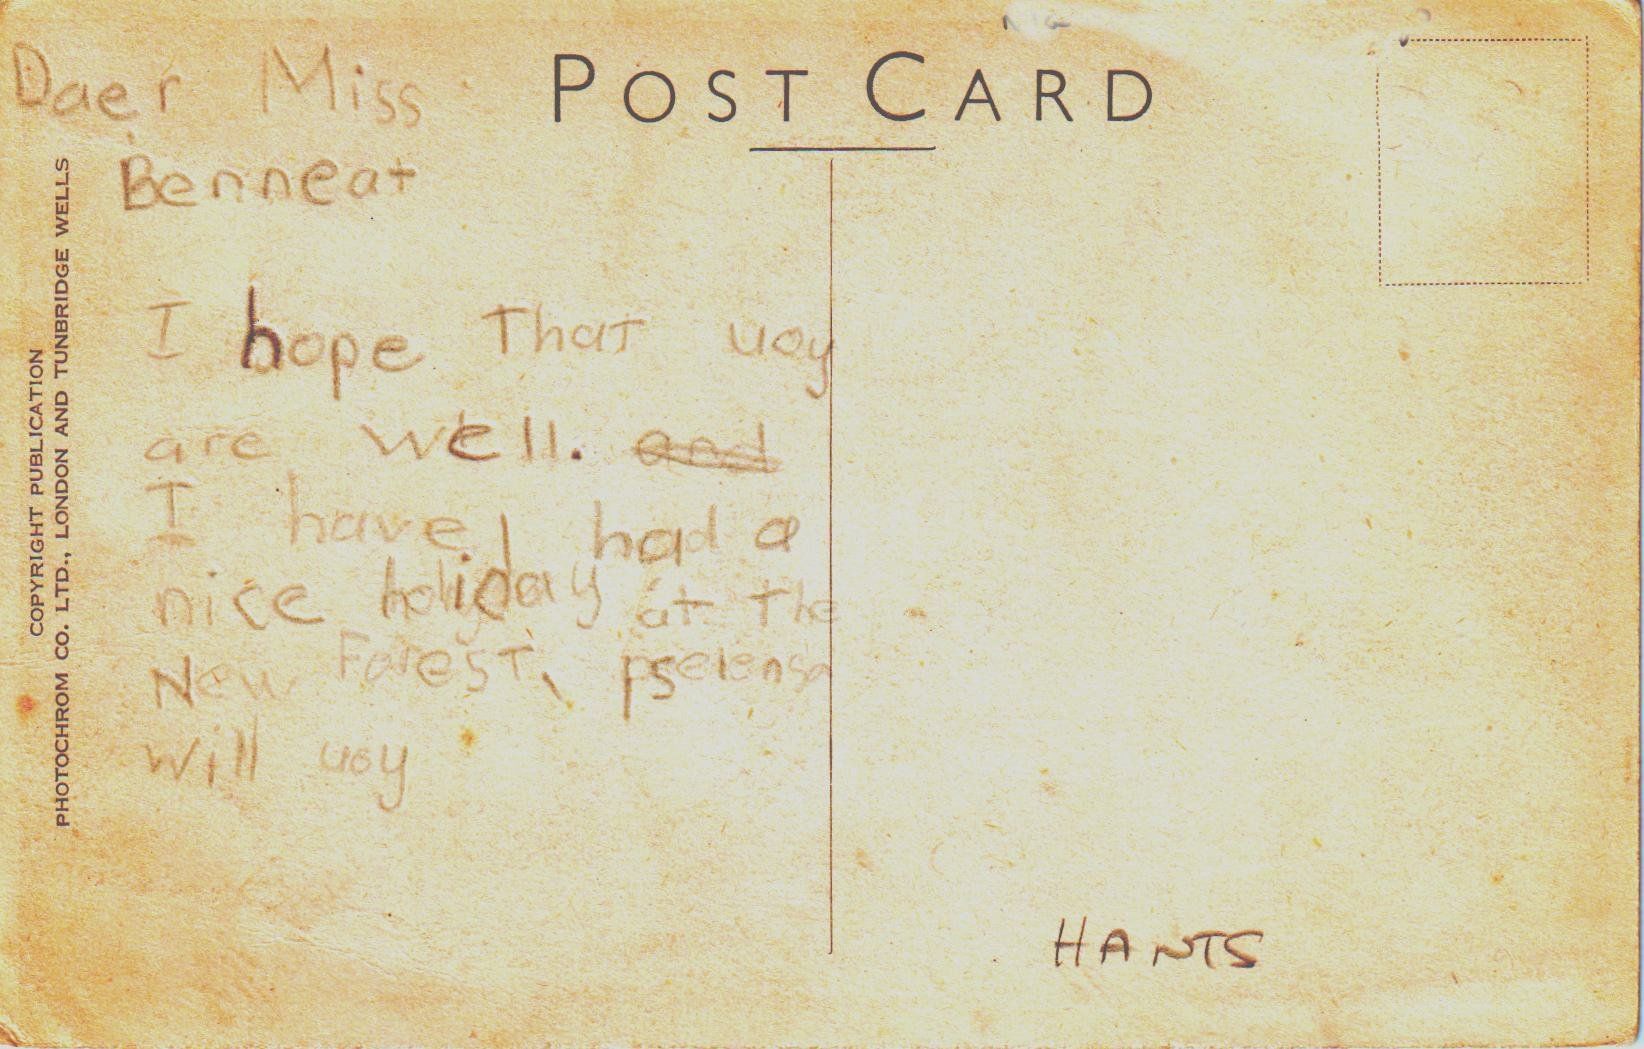 POST CARD
COPYRIGHT PUBLICATION
PHOTOCHROM CO. LTD., LONDON AND TUNBRIDGE WELLS
Daer Miss
Benneat
I hope That uoy
are well. and
I have had a
nice holiday at The
New Forest,
will uoy
HANTS